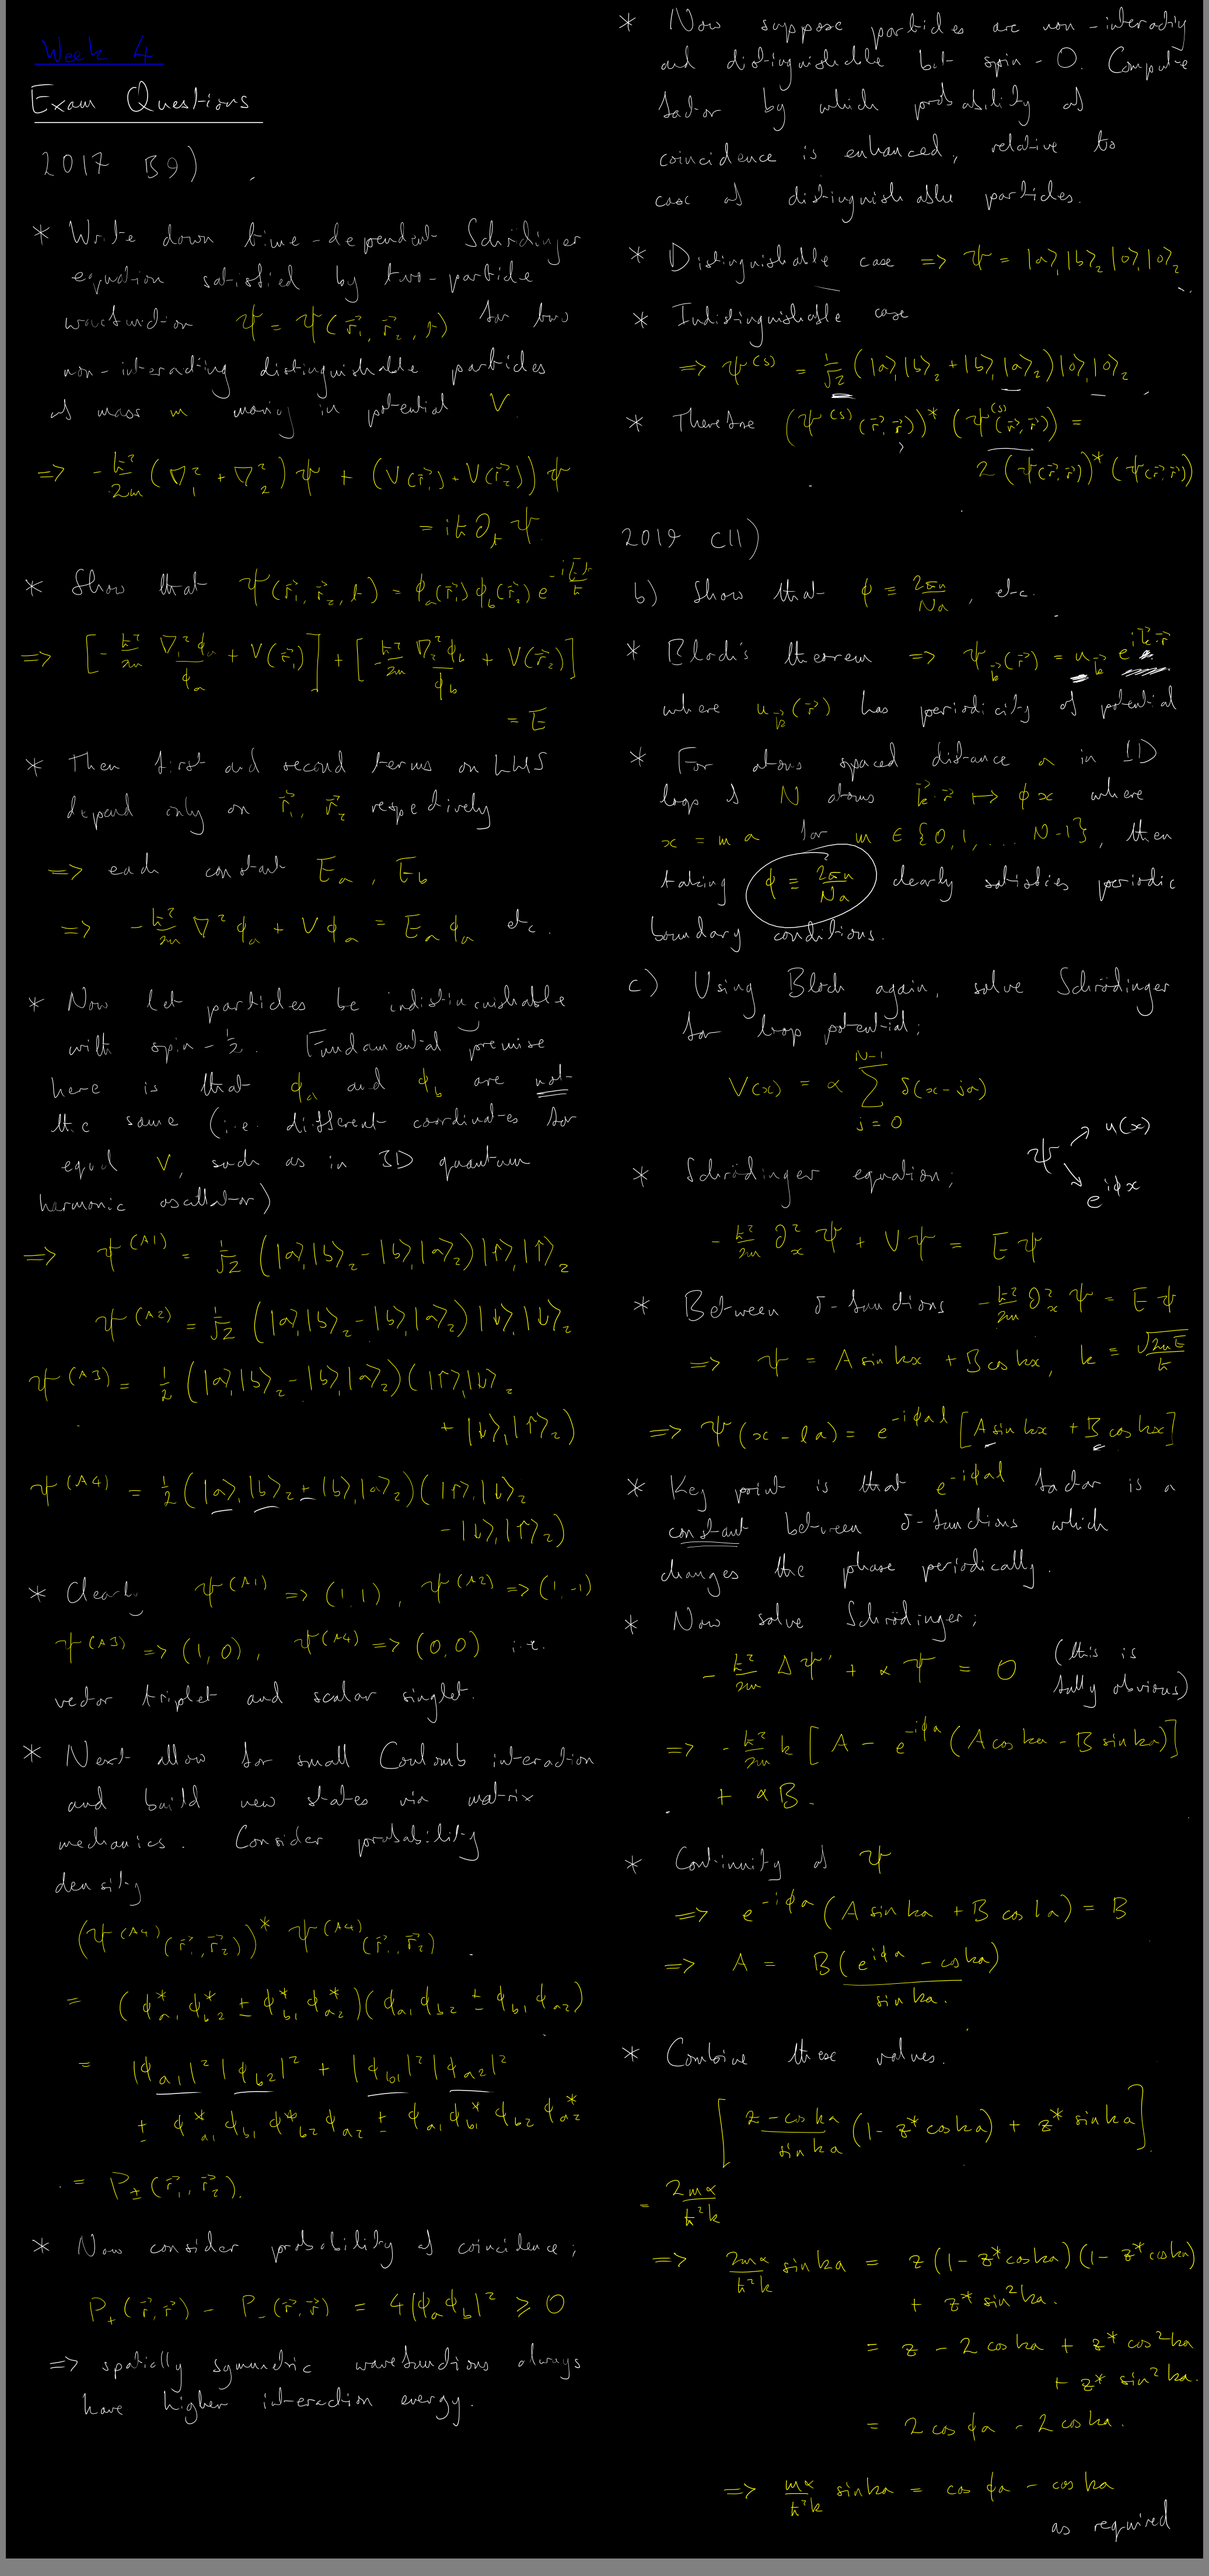 Week 4
Exam Questions
2017 B9)
* Write down time-dependent Schrödinger
equation satisfied by two-particle
wavefunction ψ = ψ(r⃗₁, r⃗₂, t) for two
non-interacting distinguishable particles
of mass m moving in potential V.
=> -ħ²/2m (∇₁² + ∇₂²)ψ + (V(r⃗₁) + V(r⃗₂))ψ
= iħ ∂ₜ ψ.
* Show that ψ(r⃗₁, r⃗₂, t) = ϕₐ(r⃗₁) ϕ_b(r⃗₂) e^{-iEt/ħ}
=> [-ħ²/2m ∇₁²ϕₐ/ϕₐ + V(r⃗₁)] + [-ħ²/2m ∇₂²ϕ_b/ϕ_b + V(r⃗₂)]
= E
* Then first and second terms on LHS
depend only on r⃗₁, r⃗₂ respectively
=> each constant Eₐ, E_b
=> -ħ²/2m ∇²ϕₐ + Vϕₐ = Eₐϕₐ etc.
* Now let particles be indistinguishable
with spin-½. Fundamental premise
here is that ϕₐ and ϕ_b are not
the same (i.e. different coordinates for
equal V, such as in 3D quantum
harmonic oscillator)
=> ψ^(A1) = 1/√2 (|a⟩₁|b⟩₂ - |b⟩₁|a⟩₂)|↑⟩₁|↑⟩₂
ψ^(A2) = 1/√2 (|a⟩₁|b⟩₂ - |b⟩₁|a⟩₂)|↓⟩₁|↓⟩₂
ψ^(A3) = ½ (|a⟩₁|b⟩₂ - |b⟩₁|a⟩₂)(|↑⟩₁|↓⟩₂
+ |↓⟩₁|↑⟩₂)
ψ^(A4) = ½ (|a⟩₁|b⟩₂ + |b⟩₁|a⟩₂)(|↑⟩₁|↓⟩₂
- |↓⟩₁|↑⟩₂)
* Clearly ψ^(A1) => (1,1), ψ^(A2) => (1,-1)
ψ^(A3) => (1,0), ψ^(A4) => (0,0) i.e.
vector triplet and scalar singlet.
* Next allow for small Coulomb interaction
and build new states via matrix
mechanics. Consider probability
density
(ψ^(A4)(r⃗₁, r⃗₂))* ψ^(A4)(r⃗₁, r⃗₂)
= (ϕ*ₐ₁ ϕ*_b2 ± ϕ*_b1 ϕ*ₐ₂)(ϕₐ₁ ϕ_b2 ± ϕ_b1 ϕₐ₂)
= |ϕₐ₁|² |ϕ_b2|² + |ϕ_b1|² |ϕₐ₂|²
± ϕ*ₐ₁ ϕ_b1 ϕ*_b2 ϕₐ₂ ± ϕₐ₁ ϕ_b1* ϕ_b2 ϕₐ₂*
= P±(r⃗₁, r⃗₂).
* Now consider probability of coincidence;
P₊(r⃗, r⃗) - P₋(r⃗, r⃗) = 4|ϕₐϕ_b|² ≥ 0
=> spatially symmetric wavefunctions always
have higher interaction energy.
* Now suppose particles are non-interacting
and distinguishable but spin-0. Compute
factor by which probability of
coincidence is enhanced, relative to
case of distinguishable particles.
* Distinguishable case => ψ = |a⟩₁|b⟩₂|0⟩₁|0⟩₂
* Indistinguishable case
=> ψ^(S) = 1/√2 (|a⟩₁|b⟩₂ + |b⟩₁|a⟩₂)|0⟩₁|0⟩₂
* Therefore (ψ^(S)(r⃗, r⃗))* (ψ^(S)(r⃗, r⃗)) =
2 (ψ(r⃗, r⃗))* (ψ(r⃗, r⃗))
2019 C11)
b) Show that ϕ = 2πn/Na, etc.
* Bloch's theorem => ψ_k⃗(r⃗) = u_k⃗ e^{ik⃗·r⃗}
where u_k⃗(r⃗) has periodicity of potential
* For atoms spaced distance a in 1D
loop of N atoms k⃗·r⃗ ↦ ϕx where
x = ma for m ∈ {0, 1, ... N-1}, then
taking ϕ = 2πn/Na clearly satisfies periodic
boundary conditions.
c) Using Bloch again, solve Schrödinger
for loop potential;
V(x) = α Σ_{j=0}^{N-1} δ(x-ja)
ψ ↗ u(x)
↘ e^{iϕx}
* Schrödinger equation;
-ħ²/2m ∂ₓ² ψ + Vψ = Eψ
* Between δ-functions -ħ²/2m ∂ₓ² ψ = Eψ
=> ψ = A sin kx + B cos kx, k = √(2mE)/ħ
=> ψ(x - la) = e^{-iϕal} [A sin kx + B cos kx]
* Key point is that e^{-iϕal} factor is a
constant between δ-functions which
changes the phase periodically.
* Now solve Schrödinger;
-ħ²/2m Δψ' + αψ = 0 (this is
fully obvious)
=> -ħ²/2m k [A - e^{-iϕa}(A cos ka - B sin ka)]
+ αB.
* Continuity of ψ
=> e^{-iϕa}(A sin ka + B cos ka) = B
=> A = B(e^{iϕa} - cos ka)/sin ka.
* Combine these values.
[(z - cos ka)/sin ka (1 - z* cos ka) + z* sin ka]
= 2mα/ħ²k
=> 2mα/ħ²k sin ka = z(1 - z* cos ka)(1 - z* cos ka)
+ z* sin² ka.
= z - 2 cos ka + z* cos² ka
+ z* sin² ka.
= 2 cos ϕa - 2 cos ka.
=> mα/ħ²k sin ka = cos ϕa - cos ka
as required